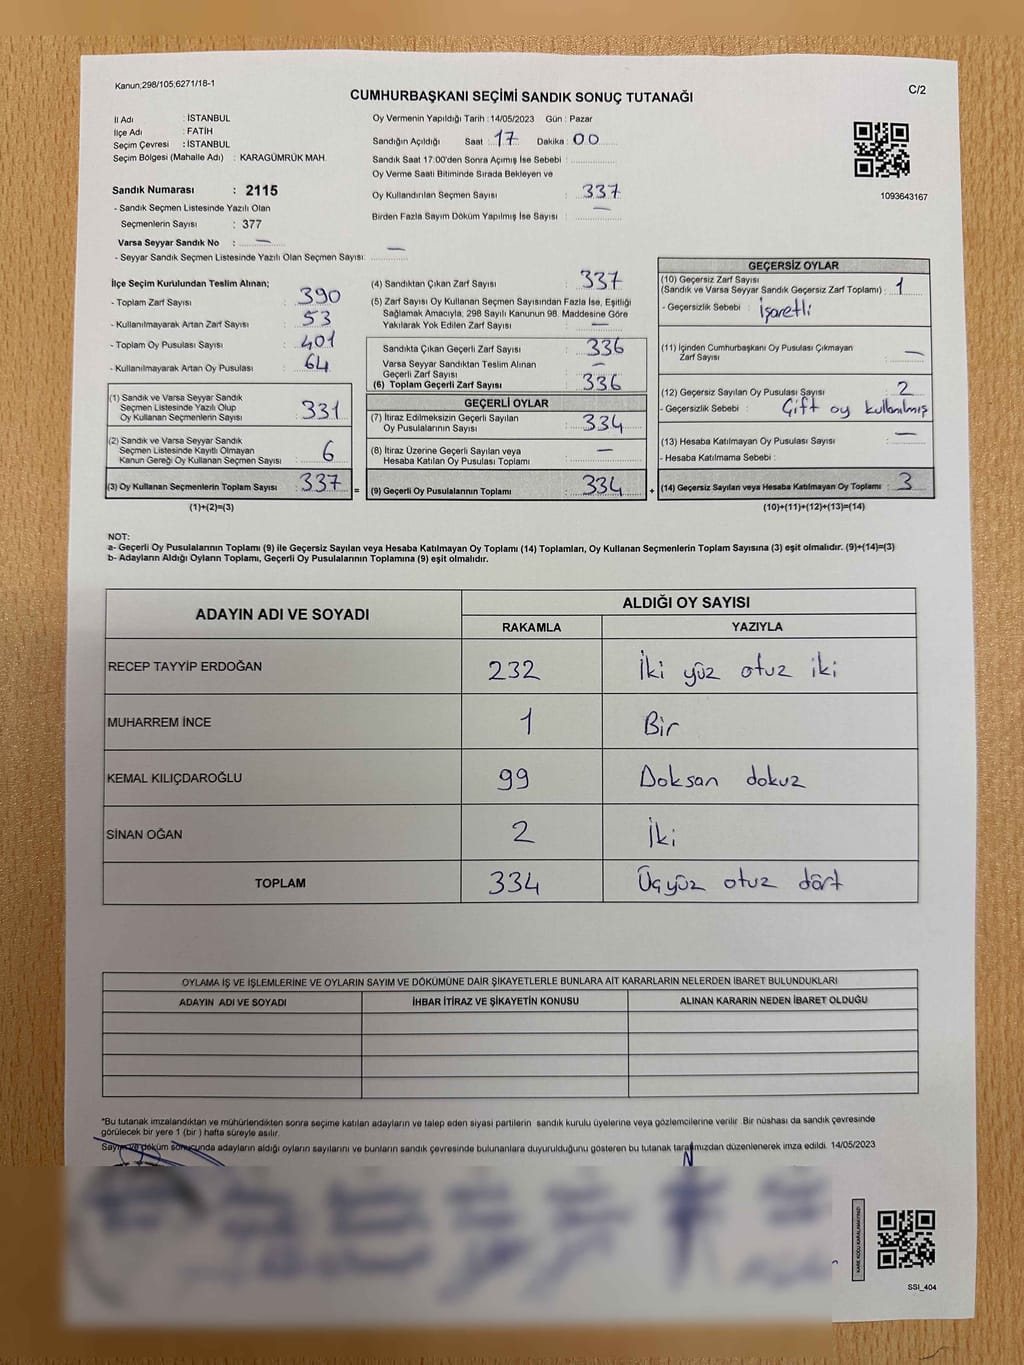 Kanun;298/105;6271/18-1
CUMHURBAŞKANI SEÇİMİ SANDIK SONUÇ TUTANAĞI
C/2
İl Adı : İSTANBUL
İlçe Adı : FATİH
Seçim Çevresi : İSTANBUL
Seçim Bölgesi (Mahalle Adı) : KARAGÜMRÜK MAH.
Sandık Numarası : 2115
- Sandık Seçmen Listesinde Yazılı Olan
Seçmenlerin Sayısı : 377
Varsa Seyyar Sandık No : —
- Seyyar Sandık Seçmen Listesinde Yazılı Olan Seçmen Sayısı: —
Oy Vermenin Yapıldığı Tarih : 14/05/2023 Gün : Pazar
Sandığın Açıldığı Saat : 17 Dakika : 00
Sandık Saat 17:00'den Sonra Açılmış İse Sebebi :
Oy Verme Saati Bitiminde Sırada Bekleyen ve
Oy Kullandırılan Seçmen Sayısı : 337
Birden Fazla Sayım Döküm Yapılmış İse Sayısı : —
1093643167
İlçe Seçim Kurulundan Teslim Alınan;
- Toplam Zarf Sayısı : 390
- Kullanılmayarak Artan Zarf Sayısı : 53
- Toplam Oy Pusulası Sayısı : 401
- Kullanılmayarak Artan Oy Pusulası : 64
(1) Sandık ve Varsa Seyyar Sandık
Seçmen Listesinde Yazılı Olup
Oy Kullanan Seçmenlerin Sayısı : 331
(2) Sandık ve Varsa Seyyar Sandık
Seçmen Listesinde Kayıtlı Olmayan
Kanun Gereği Oy Kullanan Seçmen Sayısı : 6
(3) Oy Kullanan Seçmenlerin Toplam Sayısı : 337 =
(1)+(2)=(3)
(4) Sandıktan Çıkan Zarf Sayısı : 337
(5) Zarf Sayısı Oy Kullanan Seçmen Sayısından Fazla İse, Eşitliği
Sağlamak Amacıyla, 298 Sayılı Kanunun 98. Maddesine Göre
Yakılarak Yok Edilen Zarf Sayısı : —
Sandıkta Çıkan Geçerli Zarf Sayısı : 336
Varsa Seyyar Sandıktan Teslim Alınan
Geçerli Zarf Sayısı : —
(6) Toplam Geçerli Zarf Sayısı : 336
GEÇERLİ OYLAR
(7) İtiraz Edilmeksizin Geçerli Sayılan
Oy Pusulalarının Sayısı : 334
(8) İtiraz Üzerine Geçerli Sayılan veya
Hesaba Katılan Oy Pusulası Toplamı : —
(9) Geçerli Oy Pusulalarının Toplamı : 334 +
GEÇERSİZ OYLAR
(10) Geçersiz Zarf Sayısı
(Sandık ve Varsa Seyyar Sandık Geçersiz Zarf Toplamı) : 1
- Geçersizlik Sebebi : İşaretli
(11) İçinden Cumhurbaşkanı Oy Pusulası Çıkmayan
Zarf Sayısı : —
(12) Geçersiz Sayılan Oy Pusulası Sayısı : 2
- Geçersizlik Sebebi : Çift oy kullanılmış
(13) Hesaba Katılmayan Oy Pusulası Sayısı : —
- Hesaba Katılmama Sebebi :
(14) Geçersiz Sayılan veya Hesaba Katılmayan Oy Toplamı : 3
(10)+(11)+(12)+(13)=(14)
NOT:
a- Geçerli Oy Pusulalarının Toplamı (9) ile Geçersiz Sayılan veya Hesaba Katılmayan Oy Toplamı (14) Toplamları, Oy Kullanan Seçmenlerin Toplam Sayısına (3) eşit olmalıdır. (9)+(14)=(3)
b- Adayların Aldığı Oyların Toplamı, Geçerli Oy Pusulalarının Toplamına (9) eşit olmalıdır.
ADAYIN ADI VE SOYADI
ALDIĞI OY SAYISI
RAKAMLA YAZIYLA
RECEP TAYYİP ERDOĞAN 232 İki yüz otuz iki
MUHARREM İNCE 1 Bir
KEMAL KILIÇDAROĞLU 99 Doksan dokuz
SİNAN OĞAN 2 İki
TOPLAM 334 Üçyüz otuz dört
OYLAMA İŞ VE İŞLEMLERİNE VE OYLARIN SAYIM VE DÖKÜMÜNE DAİR ŞİKAYETLERLE BUNLARA AİT KARARLARIN NELERDEN İBARET BULUNDUKLARI
ADAYIN ADI VE SOYADI İHBAR İTİRAZ VE ŞİKAYETİN KONUSU ALINAN KARARIN NEDEN İBARET OLDUĞU
*Bu tutanak imzalandıktan ve mühürlendikten sonra seçime katılan adayların ve talep eden siyasi partilerin sandık kurulu üyelerine veya gözlemcilerine verilir. Bir nüshası da sandık çevresinde
görülecek bir yere 1 (bir ) hafta süreyle asılır.
Sayım ve döküm sonucunda adayların aldığı oyların sayılarını ve bunların sandık çevresinde bulunanlara duyurulduğunu gösteren bu tutanak tarafımızdan düzenlenerek imza edildi. 14/05/2023
KARE KODU KARALAMAYINIZ!
SSI_404